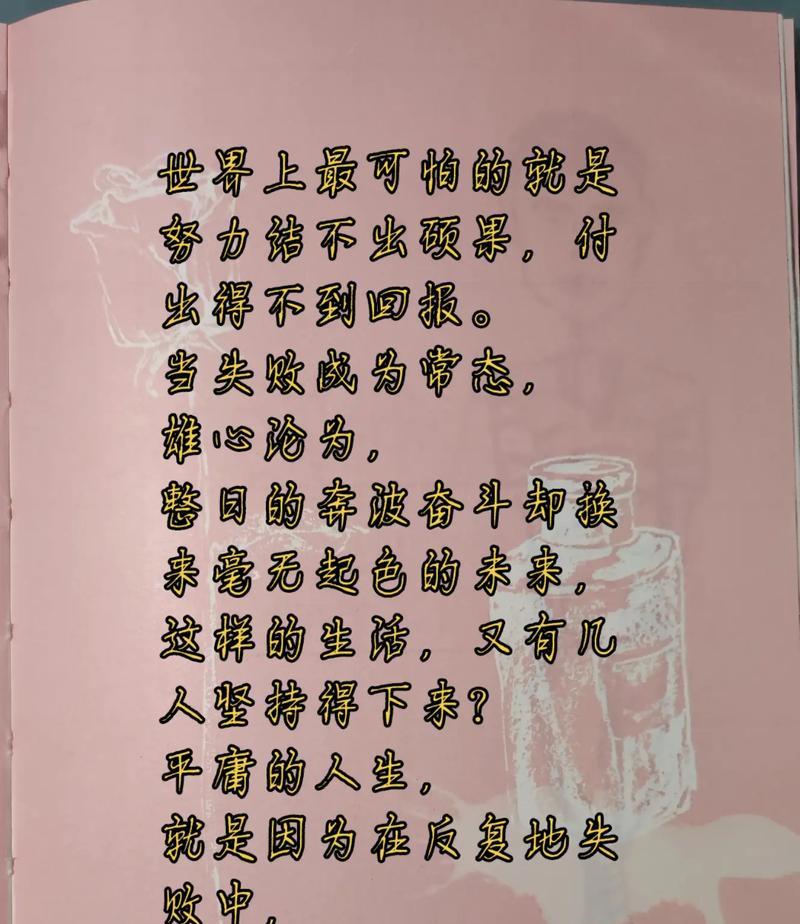 世界上最可怕的就是
努力结不出硕果，付
出得不到回报。
当失败成为常态，
雄心沦为，
整日的奔波奋斗却换
来毫无起色的未来，
这样的生活，又有几
人坚持得下来？
平庸的人生，
就是因为在反复地失
败中，